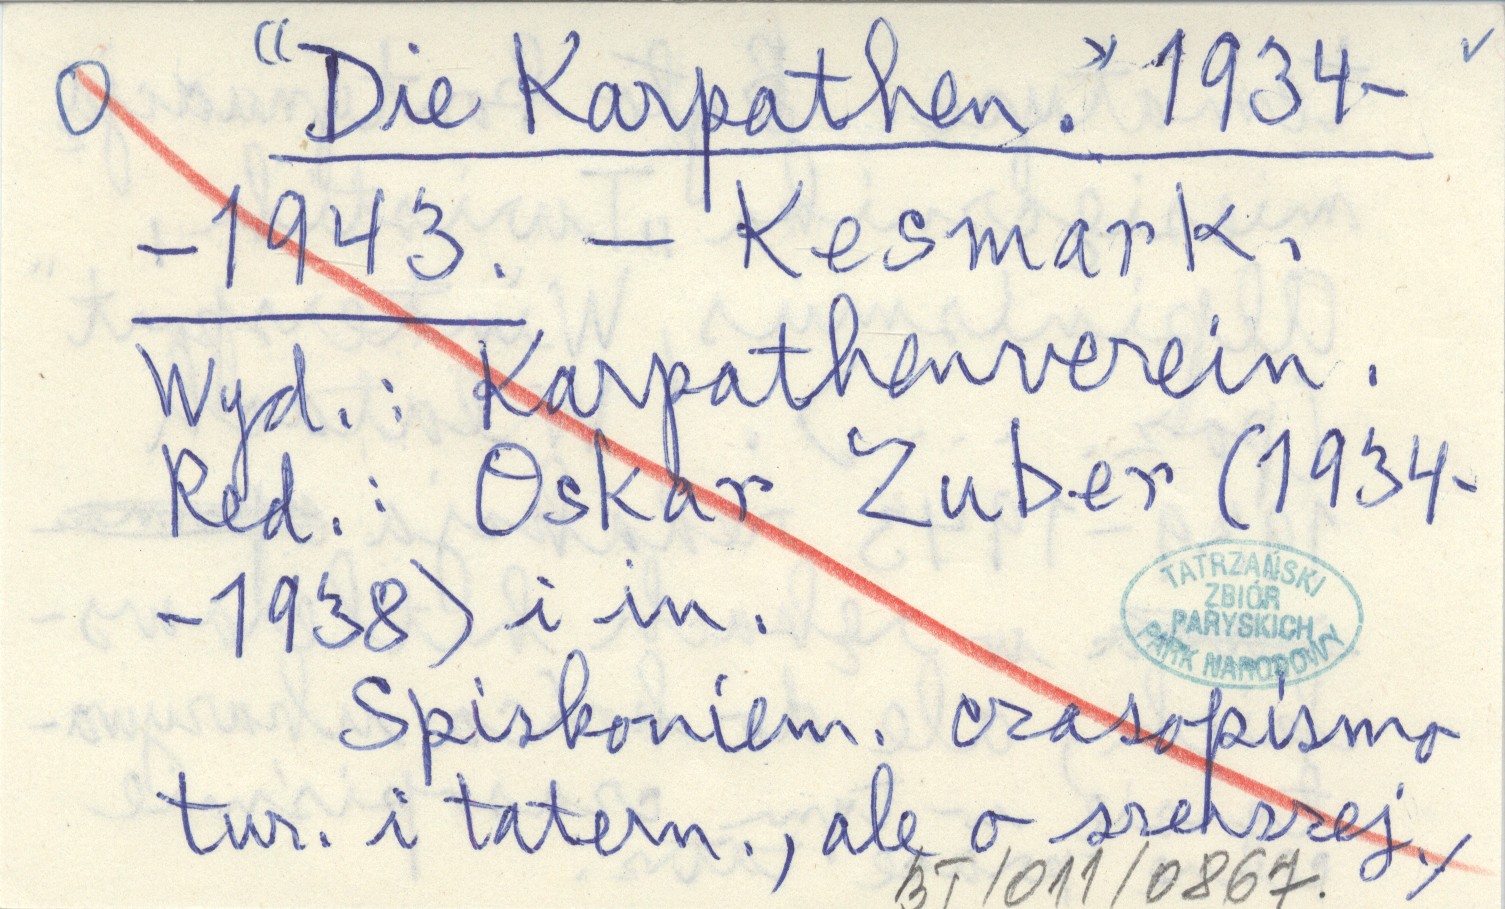 O "Die Karpathen." 1934-
-1943. — Kesmark.
Wyd.: Karpathenverein.
Red.: Oskar Zuber (1934-
-1938) i in.
TATRZAŃSKI
ZBIÓR
PARYSKICH
PARK NARODOWY
Spiskoniem. czasopismo
tur. i tatern., ale o szerszej,
BT/011/0867.